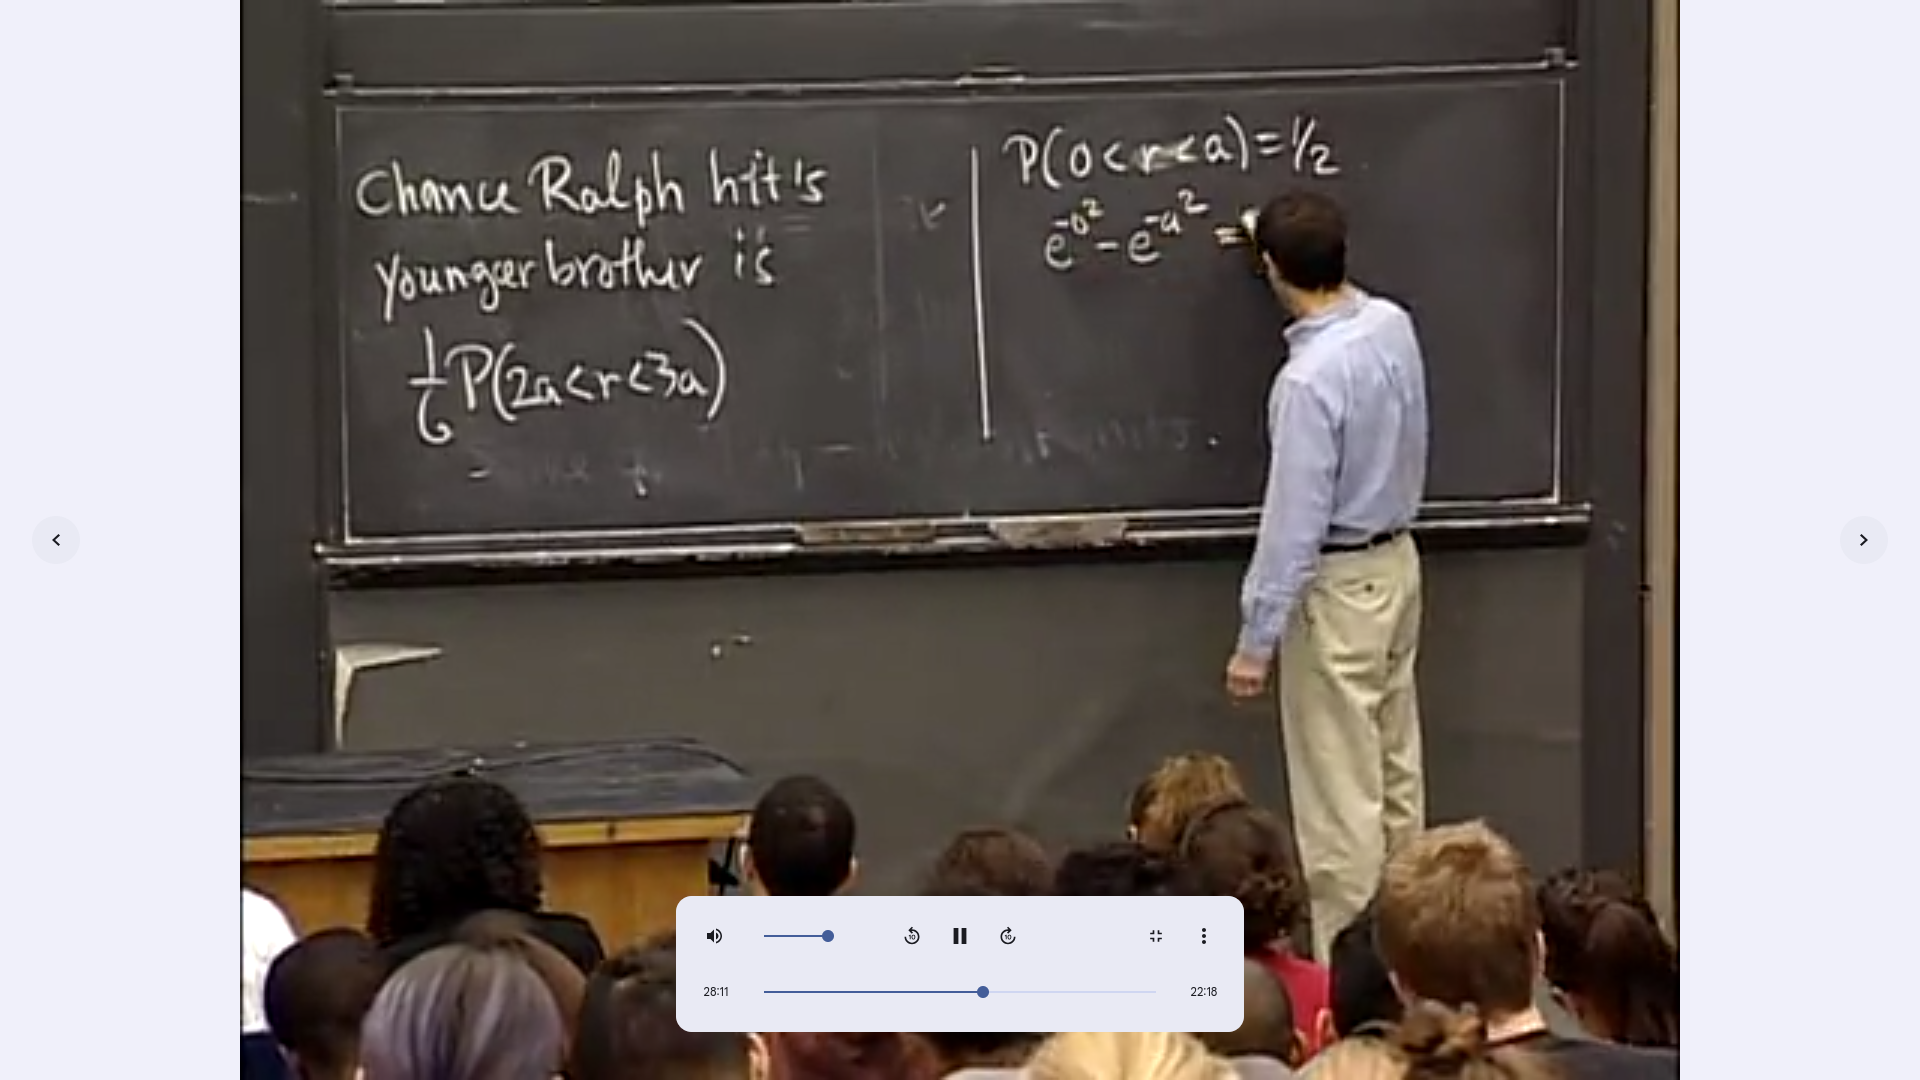 Chance Ralph hit's
younger brother is
1/6 P(2a<r<3a)
P(0<r<a)=1/2
e^-0^2 - e^-a^2 =
28:11
22:18